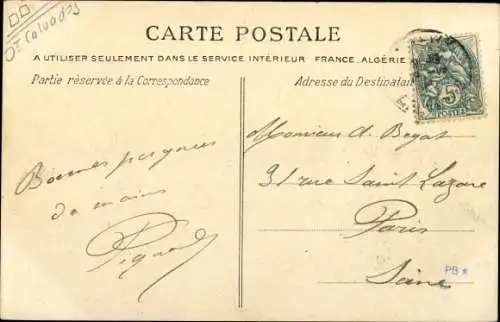 Dt Calvados
CARTE POSTALE
A UTILISER SEULEMENT DANS LE SERVICE INTÉRIEUR FRANCE, ALGÉRIE
Partie réservée à la Correspondance
Adresse du Destinatai
5
POSTES
Bonnes poignées
de mains
Monsieur A. Begat
31 rue Saint Lazare
Paris
Seine
PB *